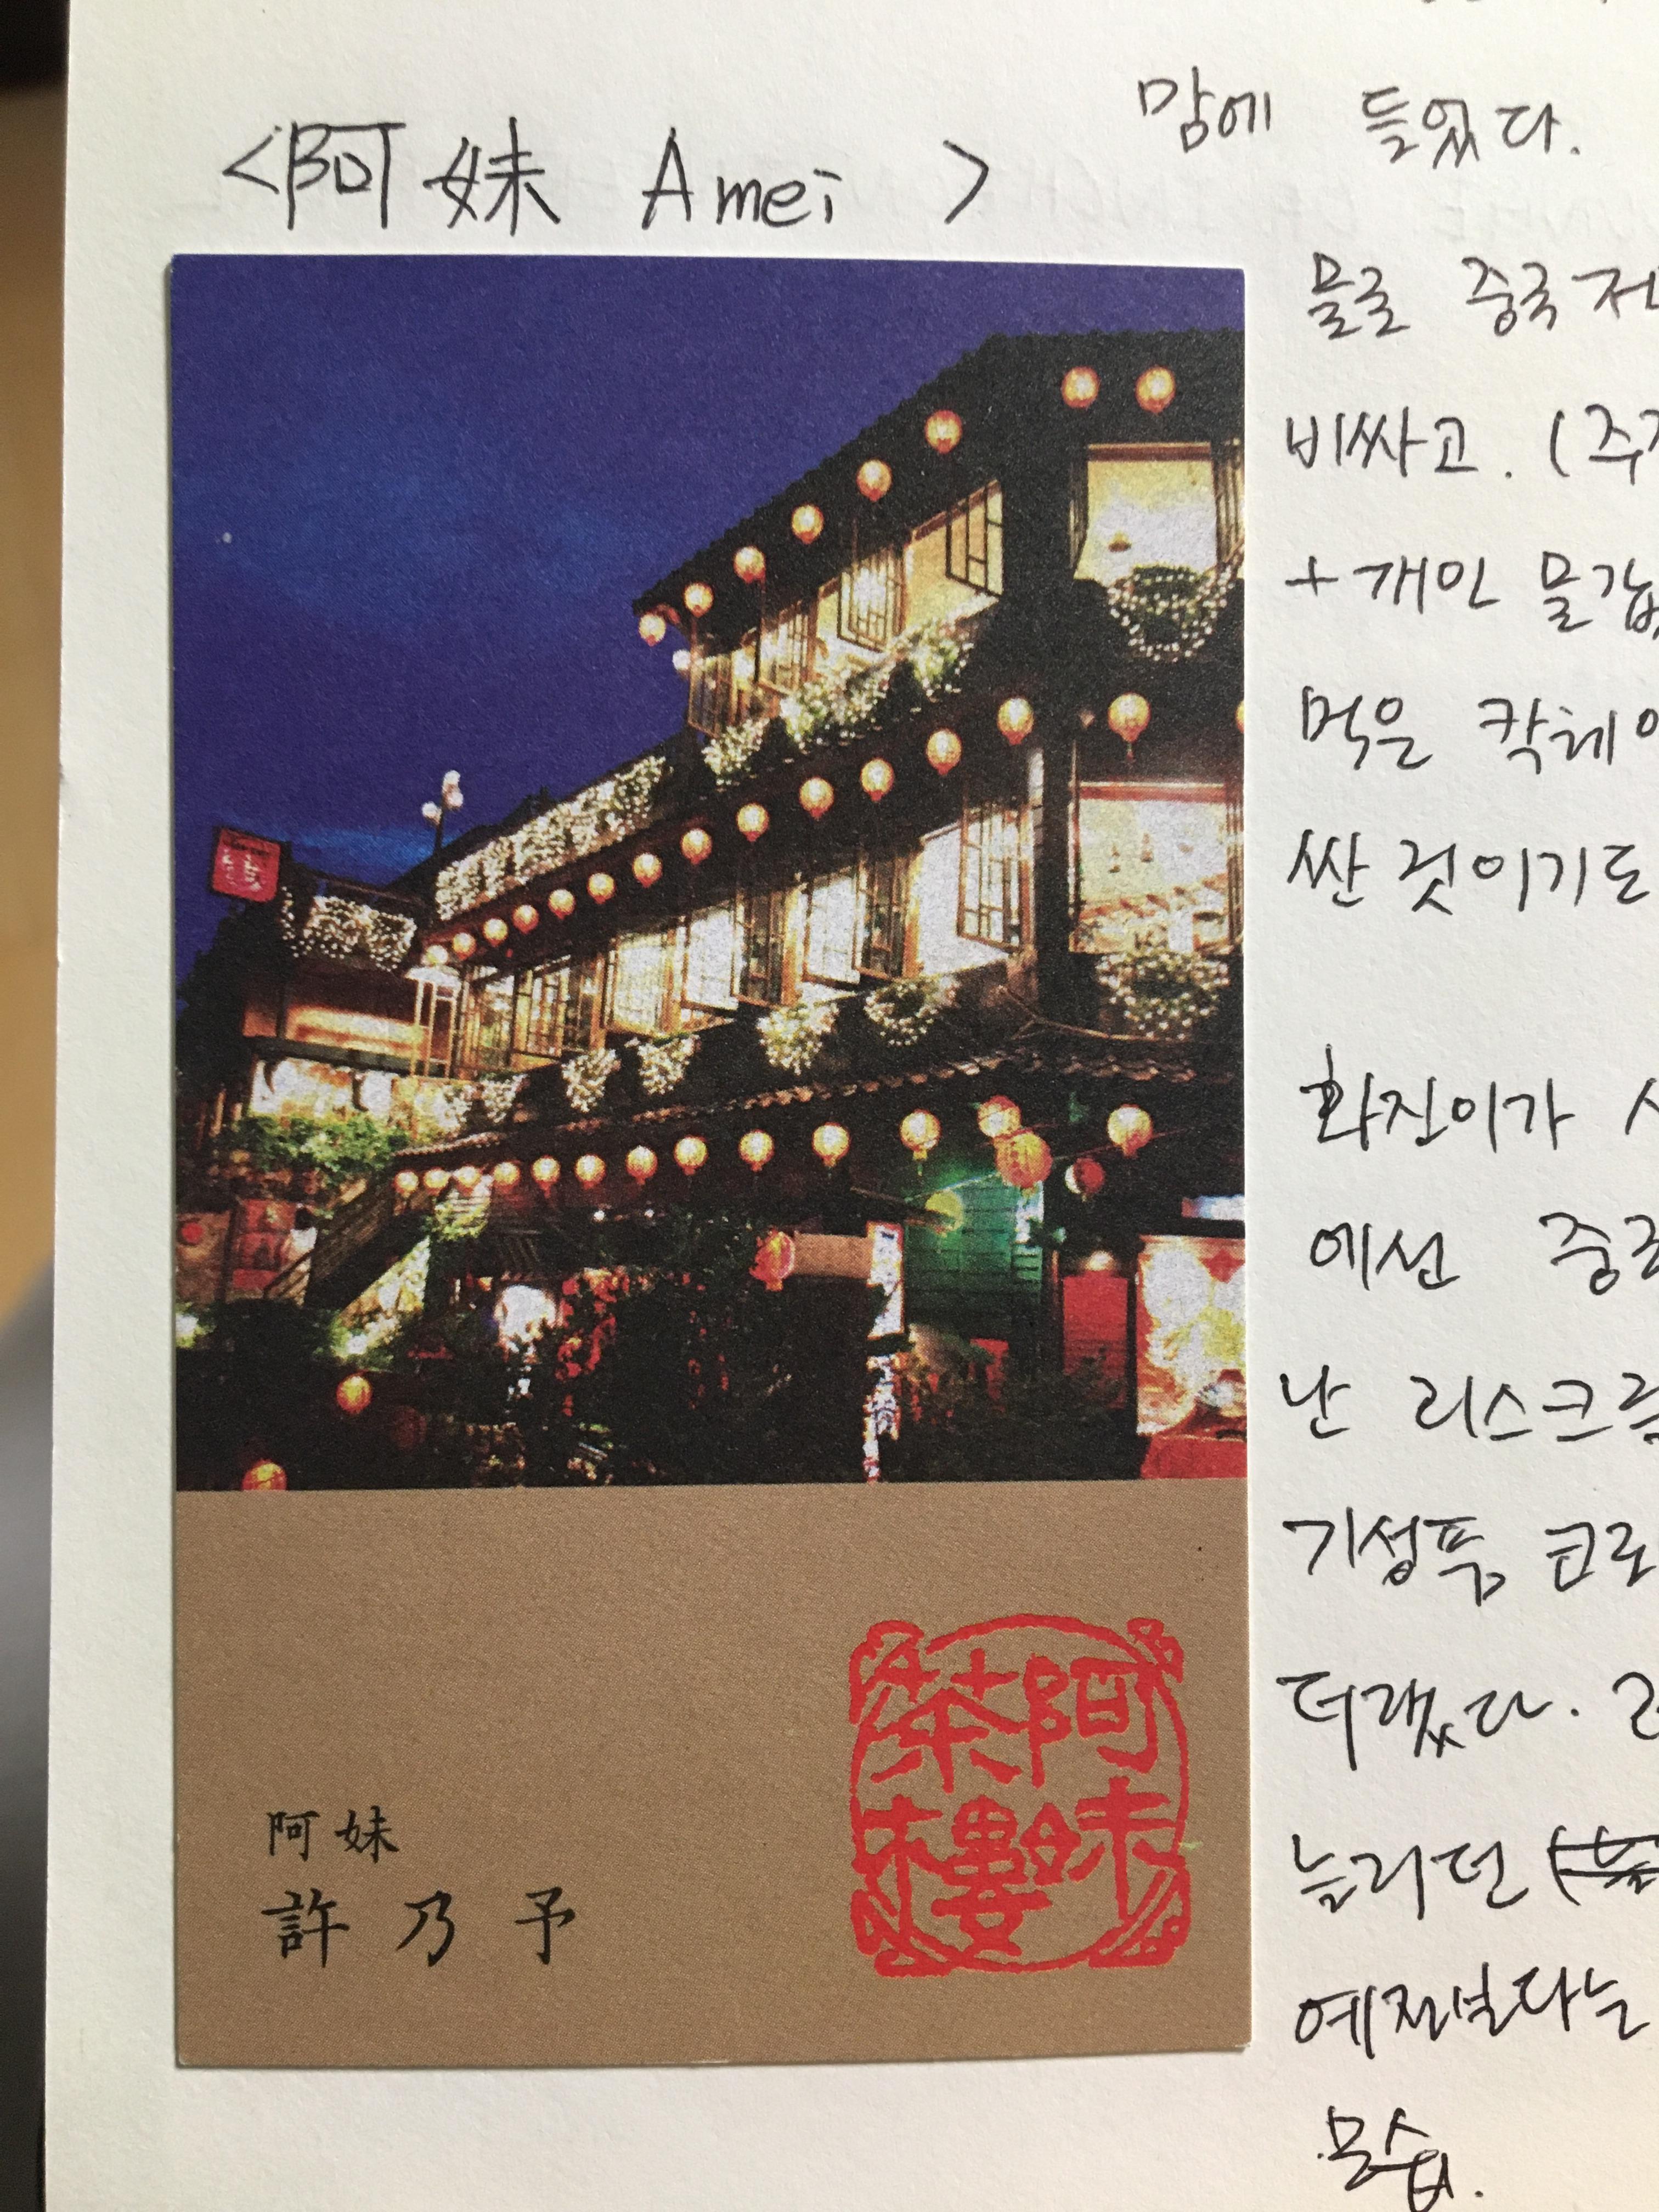 <阿妹 Amei >
맘에 들었다.
물론 중국
비싸고. (
+개인 물값
먹은 칵테
싼 것이기도
화진이가
에선 중국
난 리스크
기성품
더랬다.
늘리던
예전보다는
모습.
阿妹
茶樓
阿妹
許乃予